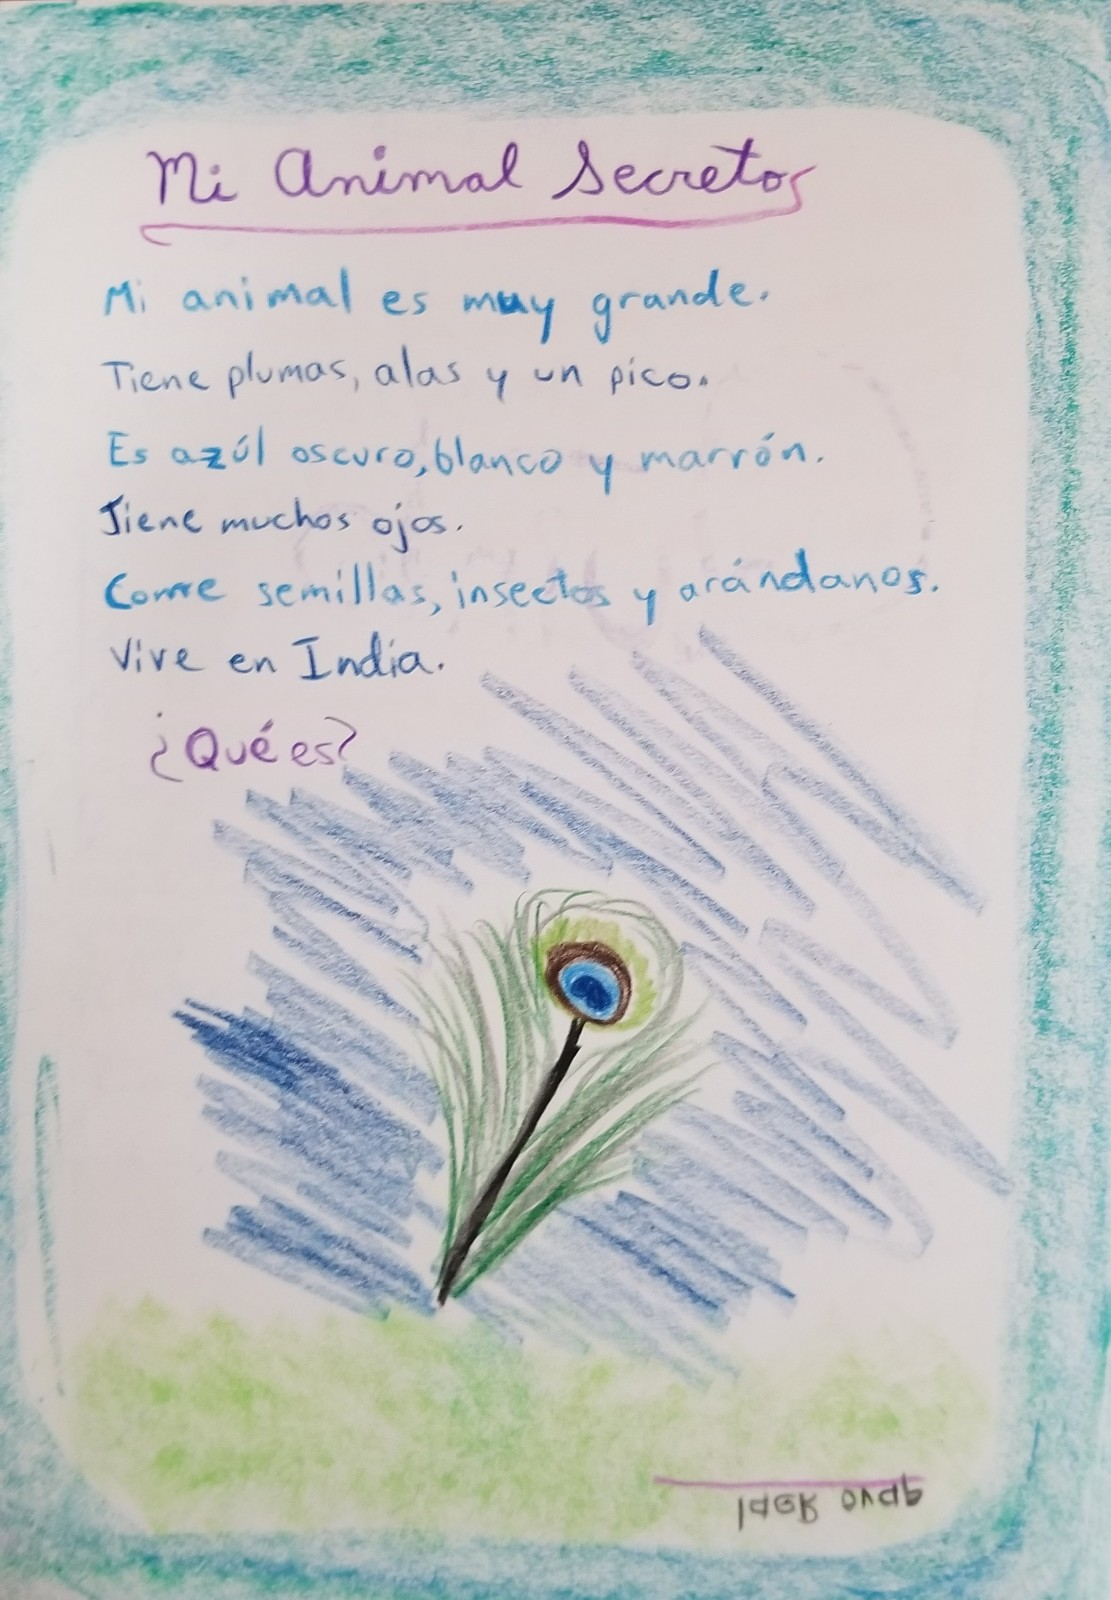 Mi Animal Secreto
Mi animal es muy grande.
Tiene plumas, alas y un pico.
Es azúl oscuro, blanco y marrón.
Tiene muchos ojos.
Come semillas, insectos y arándanos.
Vive en India.
¿Qué es?
pavo Real